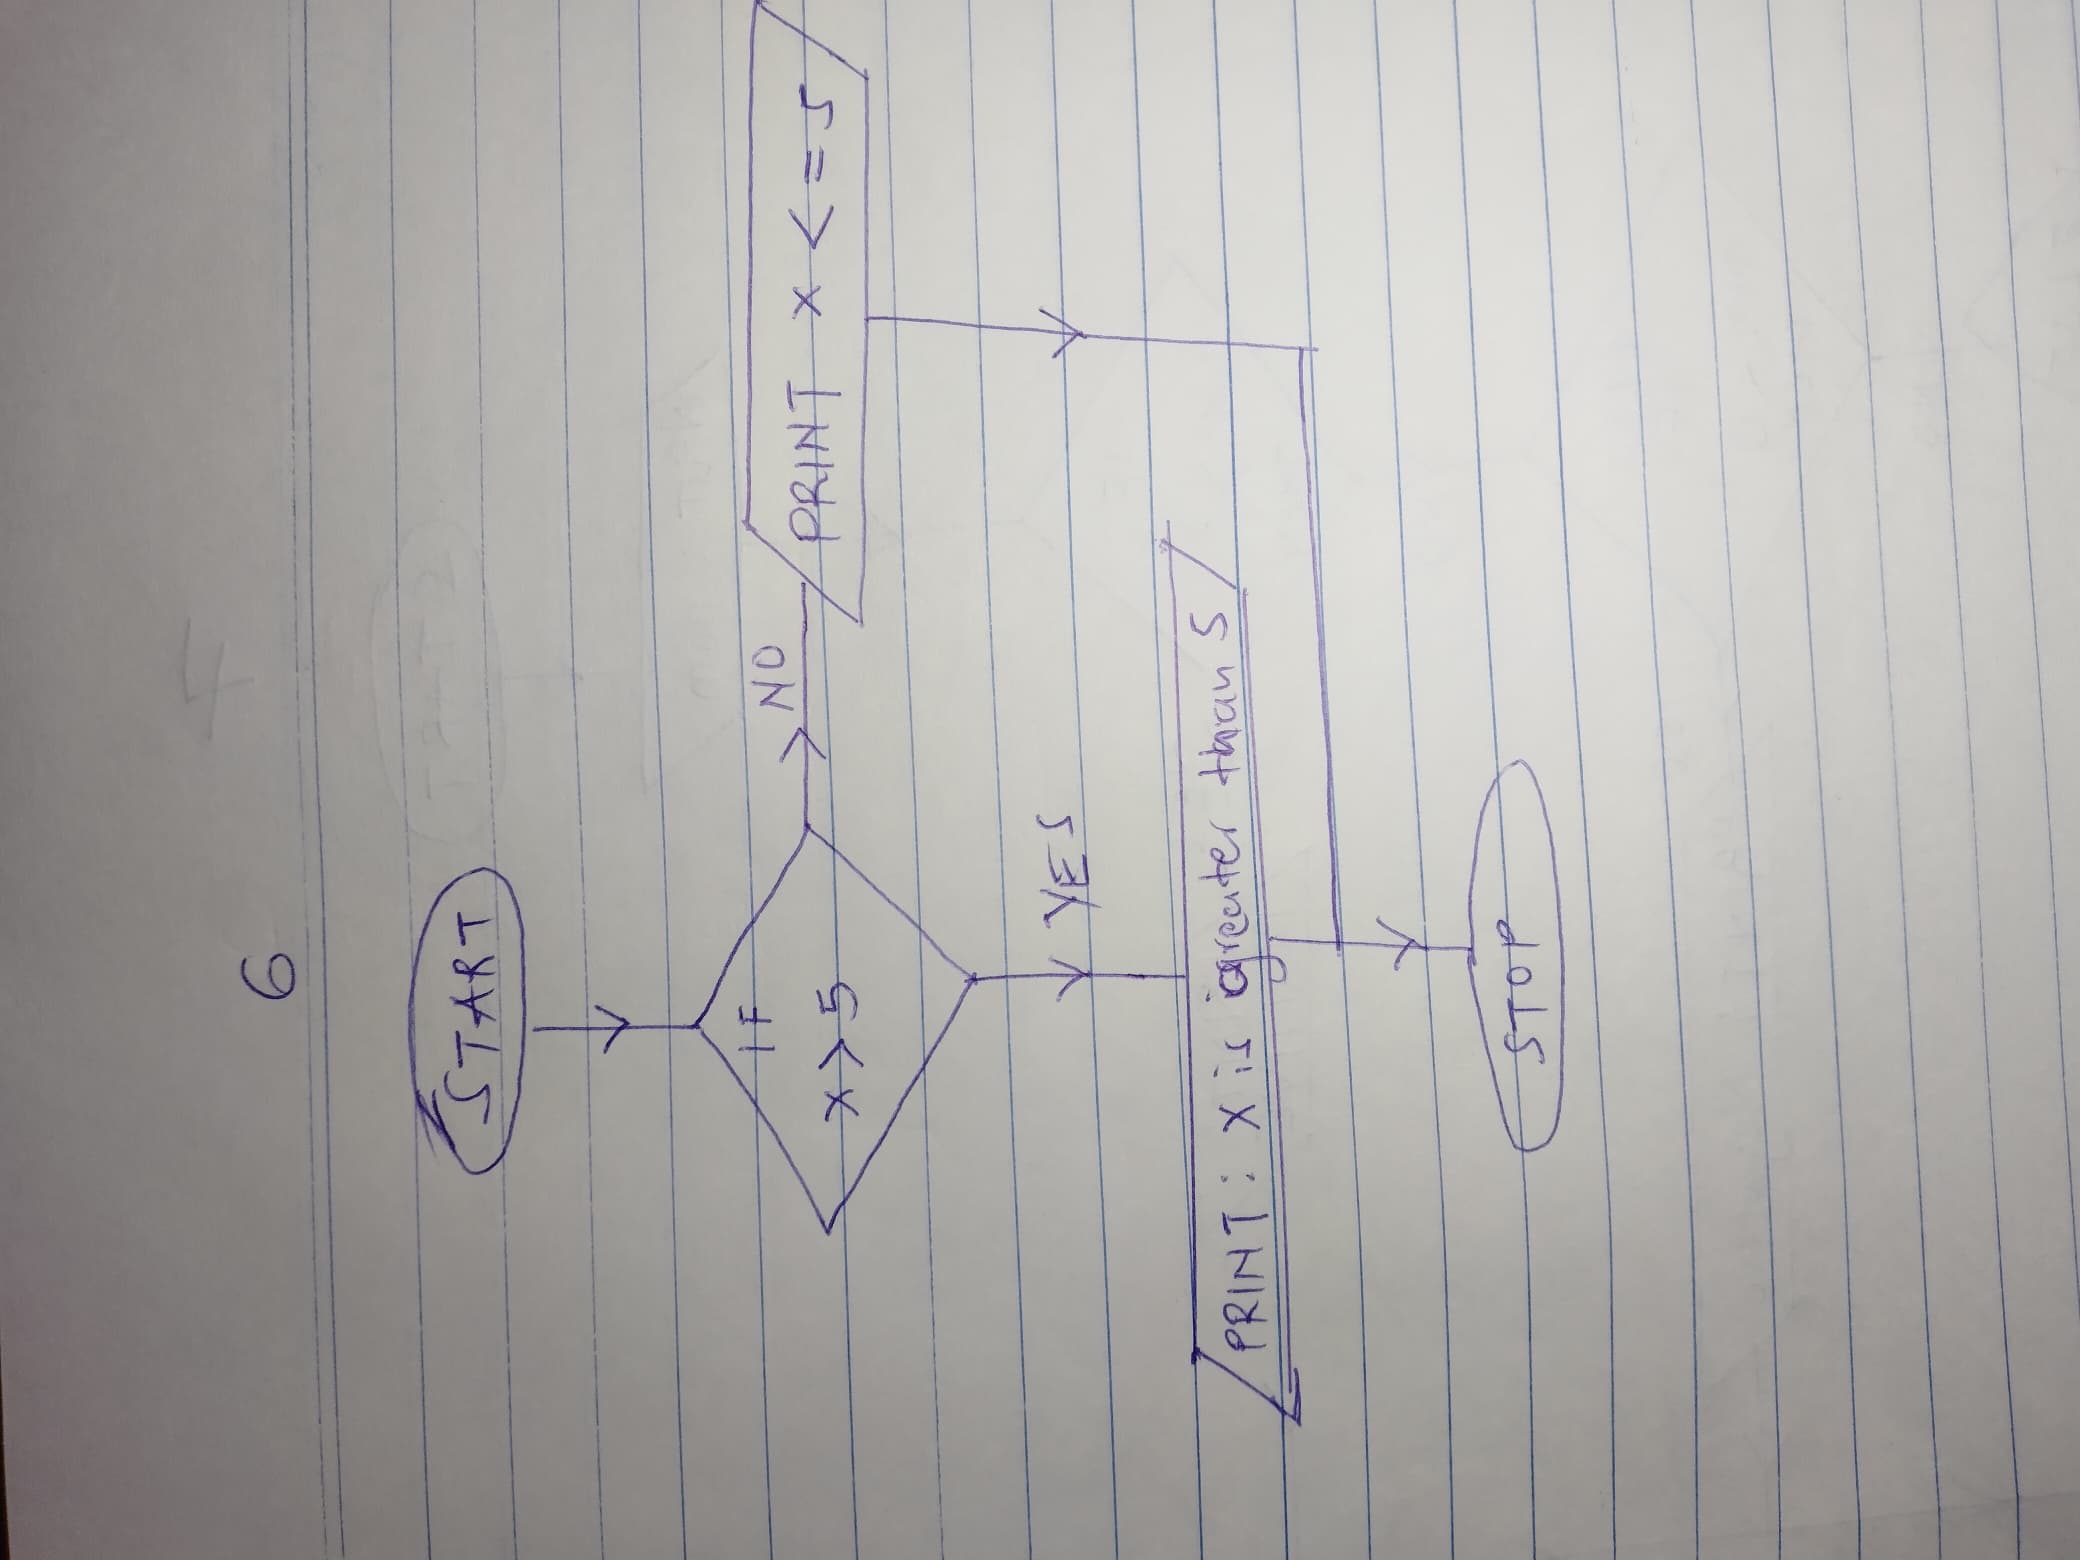 6
START
IF
x > 5
NO
PRINT x <= 5
YES
PRINT: X is greater than 5
STOP